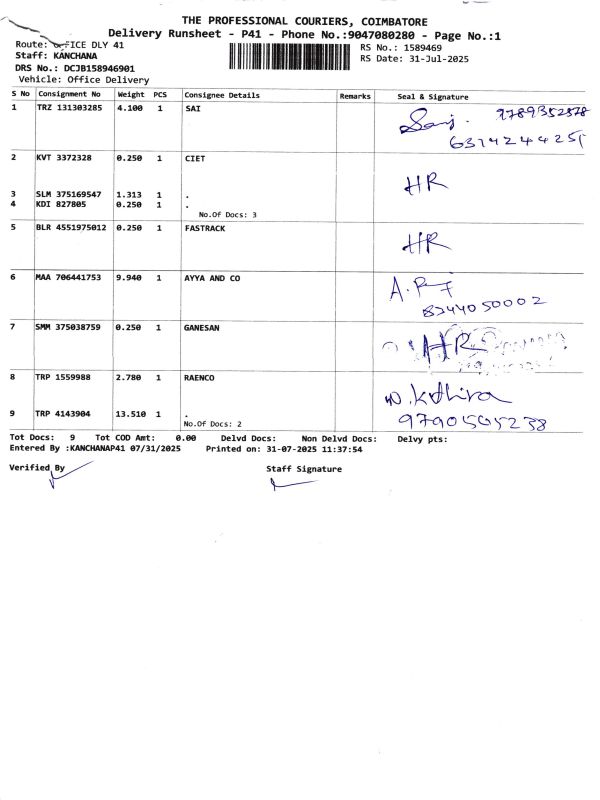 THE PROFESSIONAL COURIERS, COIMBATORE
Delivery Runsheet - P41 - Phone No.:9047080280 - Page No.:1
Route: OFFICE DLY 41
RS No.: 1589469
Staff: KANCHANA
RS Date: 31-Jul-2025
DRS No.: DCJB158946901
Vehicle: Office Delivery
S No Consignment No Weight PCS Consignee Details Remarks Seal & Signature
1 TRZ 131303285 4.100 1 SAI
9789352578
6374244251
2 KVT 3372328 0.250 1 CIET
HR
3 SLM 375169547 1.313 1 .
4 KDI 827805 0.250 1 .
No.Of Docs: 3
5 BLR 4551975012 0.250 1 FASTRACK
HR
6 MAA 706441753 9.940 1 AYYA AND CO
8344050002
7 SMM 375038759 0.250 1 GANESAN
HR
8 TRP 1559988 2.780 1 RAENCO
9 TRP 4143904 13.510 1 .
9790505238
No.Of Docs: 2
Tot Docs: 9 Tot COD Amt: 0.00 Delvd Docs: Non Delvd Docs: Delvy pts:
Entered By :KANCHANAP41 07/31/2025 Printed on: 31-07-2025 11:37:54
Verified By Staff Signature